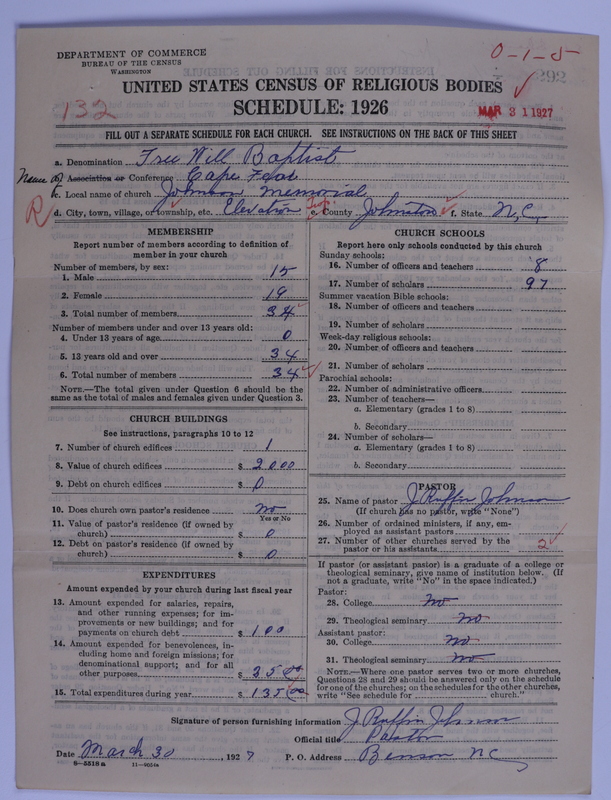 DEPARTMENT OF COMMERCE
BUREAU OF THE CENSUS
WASHINGTON
0-1-5
292
132
UNITED STATES CENSUS OF RELIGIOUS BODIES
SCHEDULE: 1926
MAR 31 1927
FILL OUT A SEPARATE SCHEDULE FOR EACH CHURCH. SEE INSTRUCTIONS ON THE BACK OF THIS SHEET
a. Denomination Free Will Baptist
Name of b. Association or Conference Cape Fear
c. Local name of church Johnson Memorial
R d. City, town, village, or township, etc. Elevation e. County Johnston f. State N.C.
MEMBERSHIP
Report number of members according to definition of member in your church
Number of members, by sex:
1. Male 15
2. Female 19
3. Total number of members 34
Number of members under and over 13 years old:
4. Under 13 years of age 0
5. 13 years old and over 34
6. Total number of members 34
NOTE.—The total given under Question 6 should be the
same as the total of males and females given under Question 3.
CHURCH BUILDINGS
See instructions, paragraphs 10 to 12
7. Number of church edifices 1
8. Value of church edifices $ 2000
9. Debt on church edifices $ 0
10. Does church own pastor's residence no
Yes or No
11. Value of pastor's residence (if owned by
church) $ 0
12. Debt on pastor's residence (if owned by
church) $ 0
EXPENDITURES
Amount expended by your church during last fiscal year
13. Amount expended for salaries, repairs,
and other running expenses; for im-
provements or new buildings; and for
payments on church debt $ 100
14. Amount expended for benevolences, in-
cluding home and foreign missions; for
denominational support; and for all
other purposes $ 35 00
15. Total expenditures during year $ 135 00
CHURCH SCHOOLS
Report here only schools conducted by this church
Sunday schools:
16. Number of officers and teachers 8
17. Number of scholars 97
Summer vacation Bible schools:
18. Number of officers and teachers
19. Number of scholars
Week-day religious schools:
20. Number of officers and teachers
21. Number of scholars
Parochial schools:
22. Number of administrative officers
23. Number of teachers—
a. Elementary (grades 1 to 8)
b. Secondary
24. Number of scholars—
a. Elementary (grades 1 to 8)
b. Secondary
PASTOR
25. Name of pastor J Ruffin Johnson
(If church has no pastor, write "None")
26. Number of ordained ministers, if any, em-
ployed as assistant pastors
27. Number of other churches served by the
pastor or his assistants 2
If pastor (or assistant pastor) is a graduate of a college or
theological seminary, give name of institution below. (If
not a graduate, write "No" in the space indicated.)
Pastor:
28. College no
29. Theological seminary no
Assistant pastor:
30. College no
31. Theological seminary no
NOTE.—Where one pastor serves two or more churches,
Questions 28 and 29 should be answered only on the schedule
for one of the churches; on the schedules for the other churches,
write "See schedule for church."
Signature of person furnishing information J Ruffin Johnson
Official title Pastor
Date March 30 1927 P. O. Address Benson NC
8-5518a